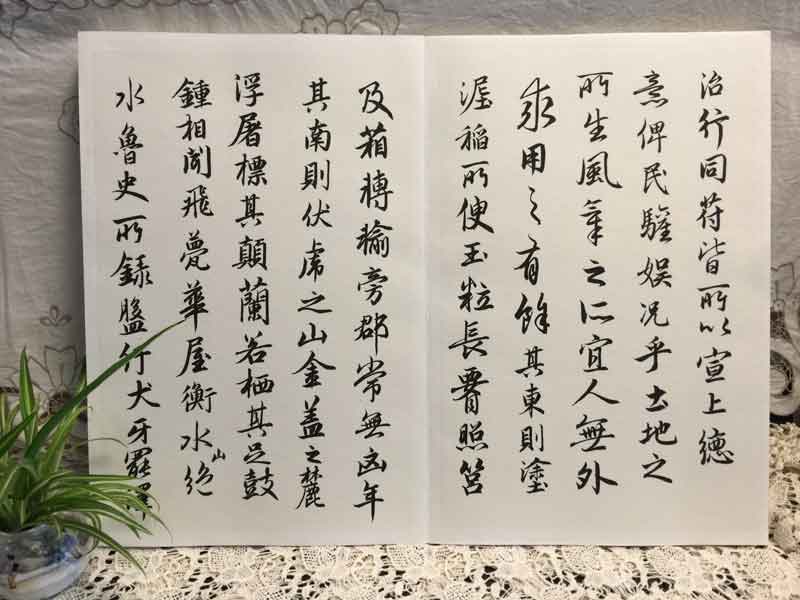 治行同苻皆所以宣上德
意俾民驩娱况乎土地之
所生風氣之所宜人無外
求用之有餘其東則塗
渥稻所便玉粒長腰照筥
及箱轉輸旁郡常無凶年
其南則伏虎之山金盖之麓
浮屠標其顛蘭若栖其足鼓
鍾相聞飛甍華屋衡水山絶
水魯史所録盤行犬牙罷澤